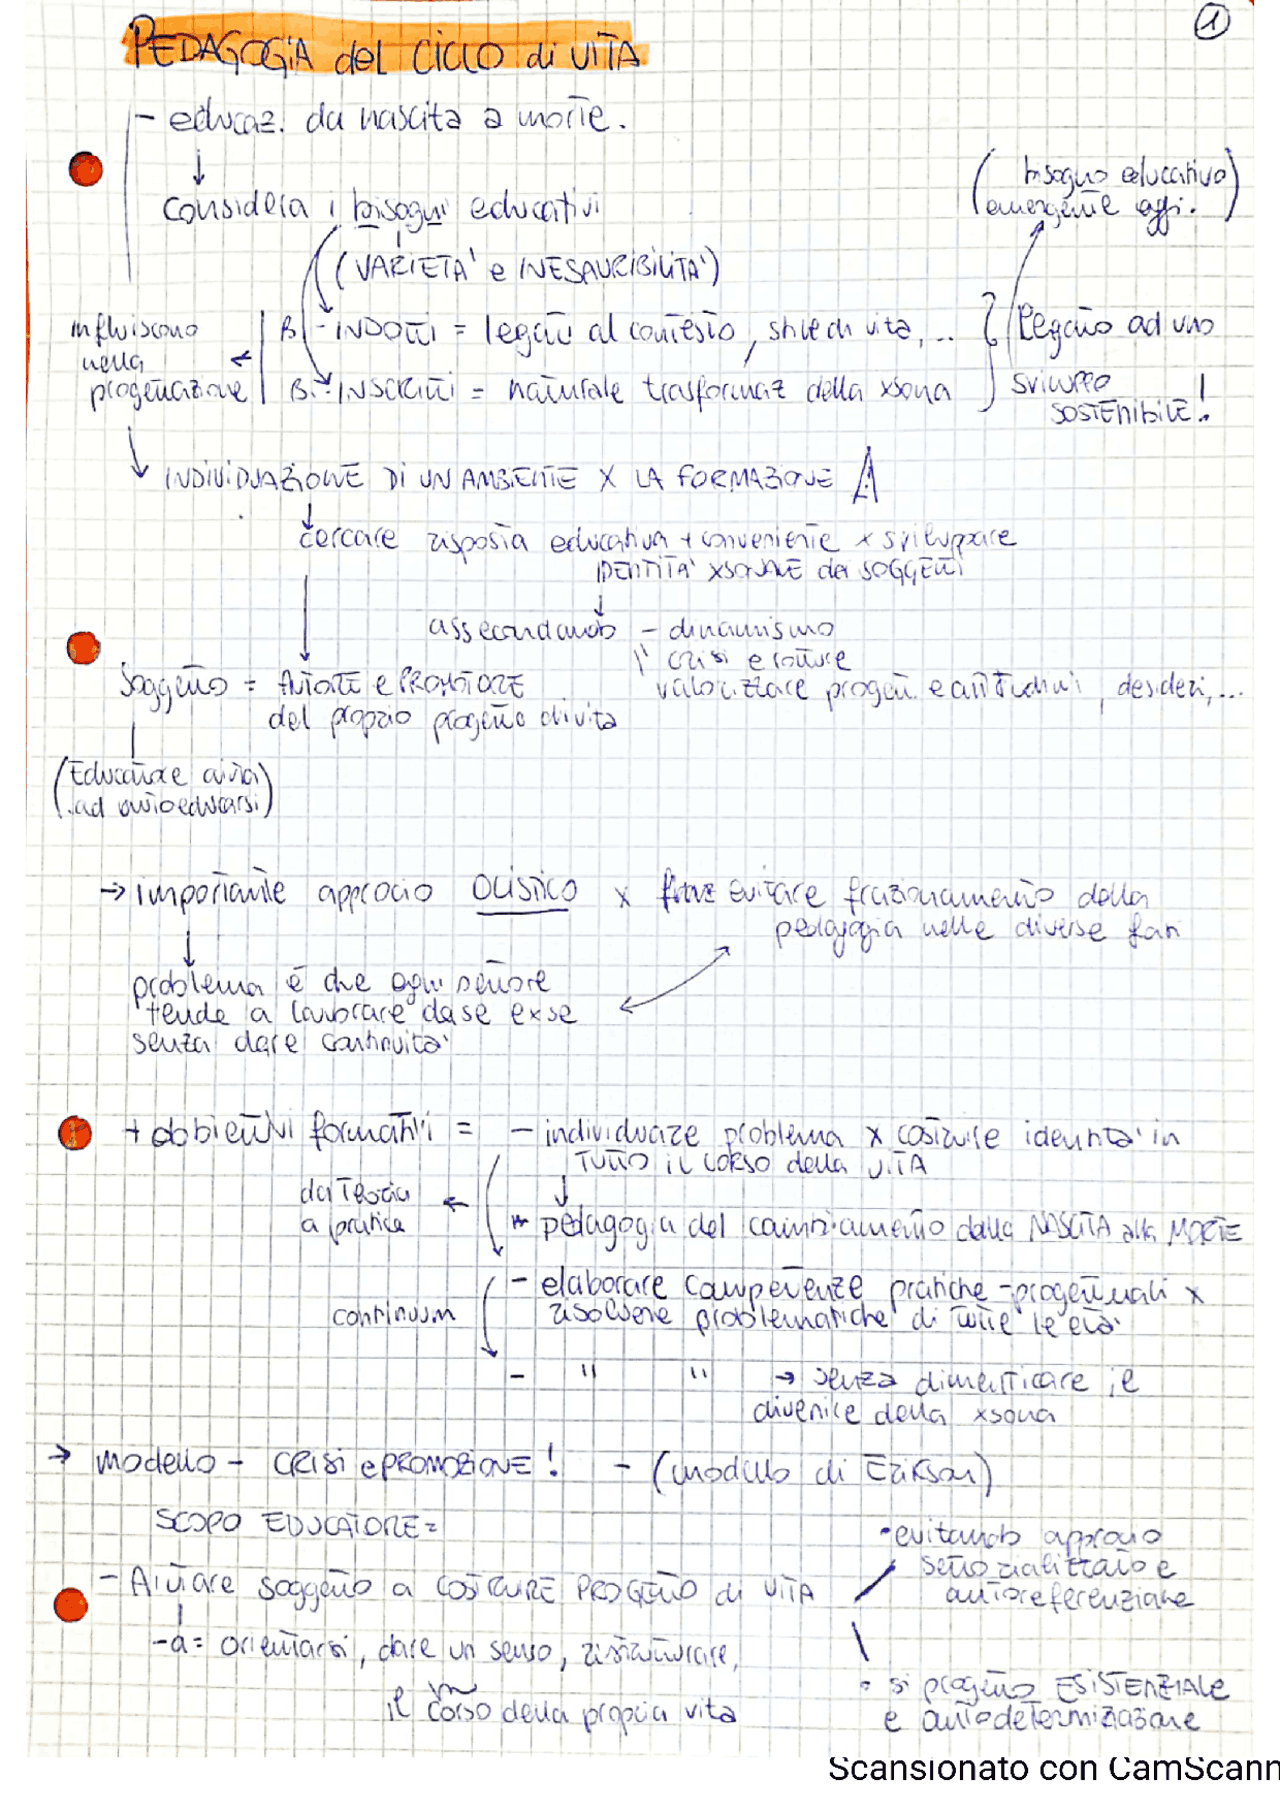 1
PEDAGOGIA del CICLO di VITA
- educaz. da nascita a morte.
considera i bisogni educativi
(bisogno educativo
emergente oggi.)
(VARIETA' e INESAURIBILITA')
influiscono
nella
progettazione
B - INDOTTI = legati al contesto, stile di vita, ..
B. - INSCRITTI = naturale trasformaz della xsona
legato ad uno
sviluppo
SOSTENIBILE!
INDIVIDUAZIONE DI UN AMBIENTE X LA FORMAZIONE
cercare risposta educativa + conveniente x sviluppare
IDENTITA' XSONALE dei SOGGETTI
assecondando - dinamismo
crisi e rotture
valorizzare progett. e attitudini, desideri, ...
Soggetto = AUTORE e PROMOTORE
del proprio progetto di vita
(Educatore aiuta
ad autoeducarsi)
→ importante approcio OLISTICO x evitare frazionamento della
pedagogia nelle diverse fasi
problema é che ogni settore
tende a lavorare da se e xse
senza dare continuita'
+ obbiettivi formativi = - individuare problema x costruire identita' in
TUTTO il CORSO della VITA
da teoria
a pratica
pedagogia del cambiamento dalla NASCITA alla MORTE
- elaborare competenze pratiche - progettuali x
risolvere problematiche di tutte le eta'
continuum
- " " → senza dimenticare il
divenire della xsona
→ modello - CRISI e PROMOZIONE! - (modello di Erikson)
SCOPO EDUCATORE =
- Aiutare soggetto a COSTRUIRE PROGETTO di VITA
- a = orientarsi, dare un senso, ristrutturare,
il corso della propria vita
• evitando approcio
settorializzato e
autoreferenziale
• si progetto ESISTENZIALE
e autodeterminazione
Scansionato con CamScann